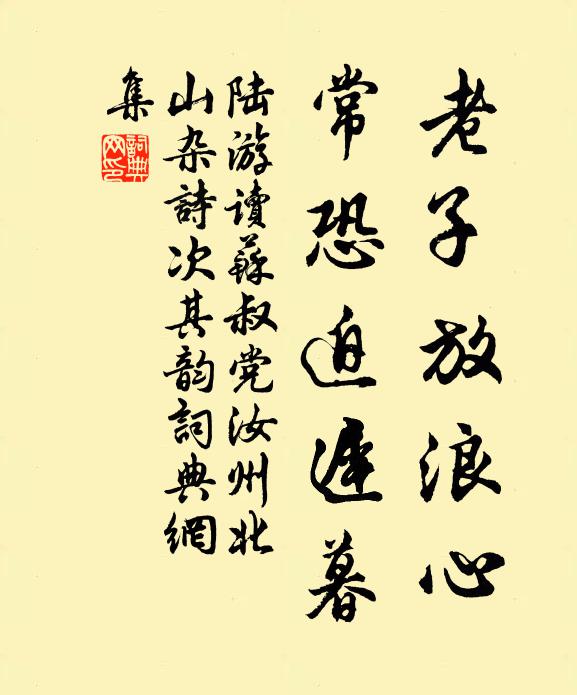 老子放浪心
常恐迫遲暮
陆游读蘇叔党汝州北
山杂詩次其韵詞典網
集
詞典網印